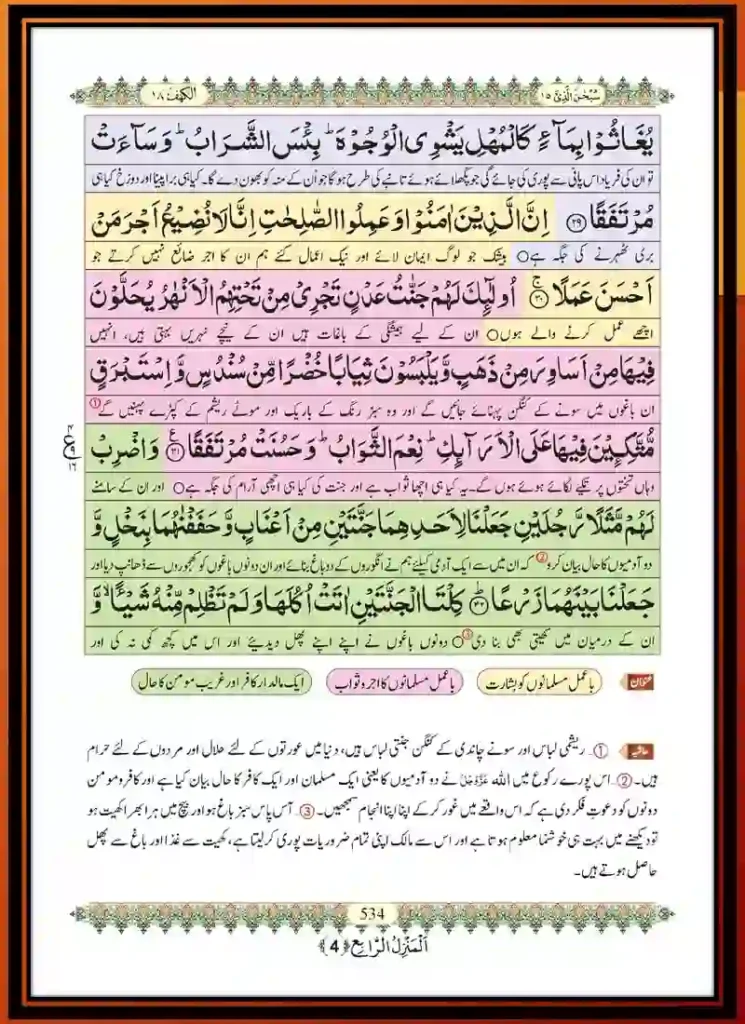 سُبْحٰنَ الَّذِیْۤ ١٥
الکهف ١٨
یُغَاثُوْا بِمَآءٍ كَالْمُهْلِ یَشْوِی الْوُجُوْهَ ؕ بِئْسَ الشَّرَابُ ؕ وَ سَآءَتْ
تو ان کی فریاد اس پانی سے پوری کی جائے گی جو پگھلائے ہوئے تانبے کی طرح ہوگا جو اُن کے منہ کو بھون دے گا۔ کیا ہی برا پینا اور دوزخ کیا ہی
مُرْتَفَقًا ﴿۲۹﴾ اِنَّ الَّذِیْنَ اٰمَنُوْا وَ عَمِلُوا الصّٰلِحٰتِ اِنَّا لَا نُضِیْعُ اَجْرَ مَنْ
بری ٹھہرنے کی جگہ ہے○ بیشک جو لوگ ایمان لائے اور نیک اعمال کئے ہم ان کا اجر ضائع نہیں کرتے جو
اَحْسَنَ عَمَلًا ﴿ۚ۳۰﴾ اُولٰٓىِٕكَ لَهُمْ جَنّٰتُ عَدْنٍ تَجْرِیْ مِنْ تَحْتِهِمُ الْاَنْهٰرُ یُحَلَّوْنَ
اچھے عمل کرنے والے ہوں○ ان کے لیے ہمیشگی کے باغات ہیں ان کے نیچے نہریں بہتی ہیں، انہیں
فِیْهَا مِنْ اَسَاوِرَ مِنْ ذَهَبٍ وَّ یَلْبَسُوْنَ ثِیَابًا خُضْرًا مِّنْ سُنْدُسٍ وَّ اِسْتَبْرَقٍ
ان باغوں میں سونے کے کنگن پہنائے جائیں گے اور وہ سبز رنگ کے باریک اور موٹے ریشم کے کپڑے پہنیں گے ①
مُّتَّكِـِٕیْنَ فِیْهَا عَلَى الْاَرَآىِٕكِ ؕ نِعْمَ الثَّوَابُ ؕ وَ حَسُنَتْ مُرْتَفَقًا ﴿۳۱﴾ وَ اضْرِبْ
وہاں تختوں پر تکیے لگائے ہوئے ہوں گے۔ یہ کیا ہی اچھا ثواب ہے اور جنت کی کیا ہی اچھی آرام کی جگہ ہے○ اور ان کے سامنے
لَهُمْ مَّثَلًا رَّجُلَیْنِ جَعَلْنَا لِاَحَدِهِمَا جَنَّتَیْنِ مِنْ اَعْنَابٍ وَّ حَفَفْنٰهُمَا بِنَخْلٍ وَّ
دو آدمیوں کا حال بیان کرو ② کہ ان میں سے ایک آدمی کیلئے ہم نے انگوروں کے دو باغ بنائے اور ان دونوں باغوں کو کھجوروں سے ڈھانپ دیا اور
جَعَلْنَا بَیْنَهُمَا زَرْعًا ﴿ؕ۳۲﴾ كِلْتَا الْجَنَّتَیْنِ اٰتَتْ اُكُلَهَا وَ لَمْ تَظْلِمْ مِّنْهُ شَیْــٴًـا ۙ وَّ
ان کے درمیان میں کھیتی بھی بنا دی ③○ دونوں باغوں نے اپنے اپنے پھل دیدئیے اور اس میں کچھ کمی نہ کی اور
ع ۱٦
عنوان باعمل مسلمانوں کو بشارت باعمل مسلمانوں کا اجر و ثواب ایک مالدار کافر اور غریب مومن کا حال
حاشیہ ①۔ ریشمی لباس اور سونے چاندی کے کنگن جنتی لباس ہیں، دنیا میں عورتوں کے لئے حلال اور مردوں کے لئے حرام
ہیں۔ ②۔ اس پورے رکوع میں اللہ عَزَّوَجَلَّ نے دو آدمیوں کا یعنی ایک مسلمان اور ایک کافر کا حال بیان کیا ہے اور کافر و مومن
دونوں کو دعوتِ فکر دی ہے کہ اس واقعے میں غور کر کے اپنا اپنا انجام سمجھیں۔ ③۔ آس پاس سبز باغ ہو اور بیچ میں ہرا بھرا کھیت ہو
تو دیکھنے میں بہت ہی خوشنما معلوم ہوتا ہے اور اس سے مالک اپنی تمام ضروریات پوری کر لیتا ہے، کھیت سے غذا اور باغ سے پھل
حاصل ہوتے ہیں۔
534
اَلْمَنْزِلُ الرَّابِع ﴿4﴾